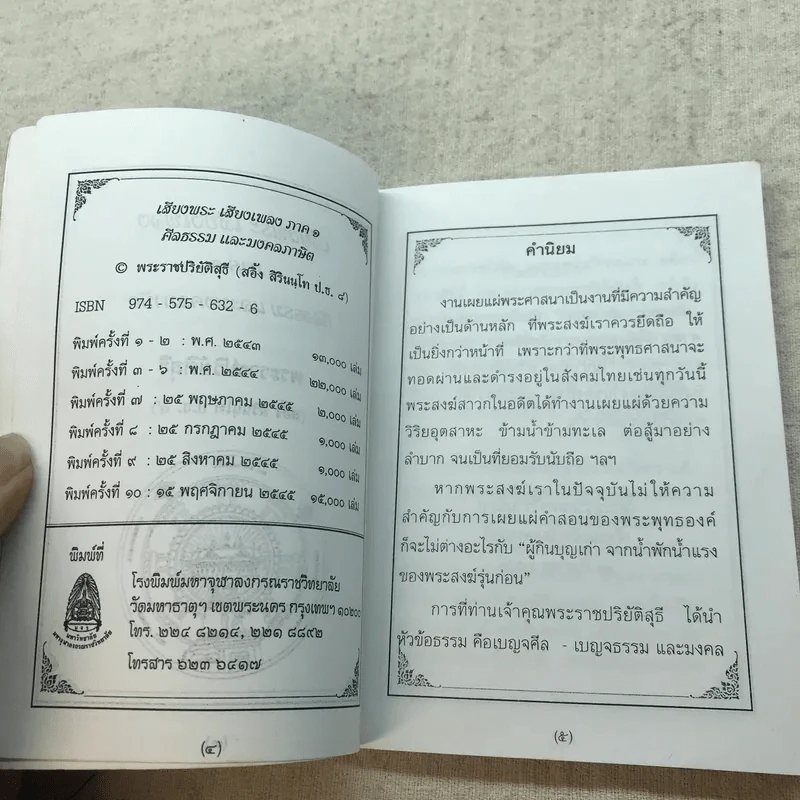 เสียงพระ เสียงเพลง ภาค ๑
ศีลธรรม และมงคลภาษิต
© พระราชปริยัติสุธี (สอิ้ง สิรินนฺโท ป.ธ. ๘)
ISBN 974 - 575 - 632 - 6
พิมพ์ครั้งที่ ๑ - ๒ : พ.ศ. ๒๕๔๓ ๑๓,๐๐๐ เล่ม
พิมพ์ครั้งที่ ๓ - ๖ : พ.ศ. ๒๕๔๔ ๒๒,๐๐๐ เล่ม
พิมพ์ครั้งที่ ๗ : ๒๕ พฤษภาคม ๒๕๔๕ ๒,๐๐๐ เล่ม
พิมพ์ครั้งที่ ๘ : ๒๕ กรกฎาคม ๒๕๔๕ ๑,๐๐๐ เล่ม
พิมพ์ครั้งที่ ๙ : ๒๕ สิงหาคม ๒๕๔๕ ๑,๐๐๐ เล่ม
พิมพ์ครั้งที่ ๑๐ : ๑๕ พฤศจิกายน ๒๕๔๕ ๑๕,๐๐๐ เล่ม
พิมพ์ที่
โรงพิมพ์มหาจุฬาลงกรณราชวิทยาลัย
วัดมหาธาตุฯ เขตพระนคร กรุงเทพฯ ๑๐๒๐๐
โทร. ๒๒๔ ๘๒๑๔, ๒๒๑ ๘๘๙๒
โทรสาร ๖๒๓ ๖๔๑๗
มจร
มหาวิทยาลัย
มหาจุฬาลงกรณราชวิทยาลัย
(๔)
คำนิยม
งานเผยแผ่พระศาสนาเป็นงานที่มีความสำคัญ
อย่างเป็นด้านหลัก ที่พระสงฆ์เราควรยึดถือ ให้
เป็นยิ่งกว่าหน้าที่ เพราะกว่าที่พระพุทธศาสนาจะ
ทอดผ่านและดำรงอยู่ในสังคมไทยเช่นทุกวันนี้
พระสงฆ์สาวกในอดีตได้ทำงานเผยแผ่ด้วยความ
วิริยอุตสาหะ ข้ามน้ำข้ามทะเล ต่อสู้มาอย่าง
ลำบาก จนเป็นที่ยอมรับนับถือ ฯลฯ
หากพระสงฆ์เราในปัจจุบันไม่ให้ความ
สำคัญกับการเผยแผ่คำสอนของพระพุทธองค์
ก็จะไม่ต่างอะไรกับ “ผู้กินบุญเก่า จากน้ำพักน้ำแรง
ของพระสงฆ์รุ่นก่อน”
การที่ท่านเจ้าคุณพระราชปริยัติสุธี ได้นำ
หัวข้อธรรม คือเบญจศีล - เบญจธรรม และมงคล
(๕)